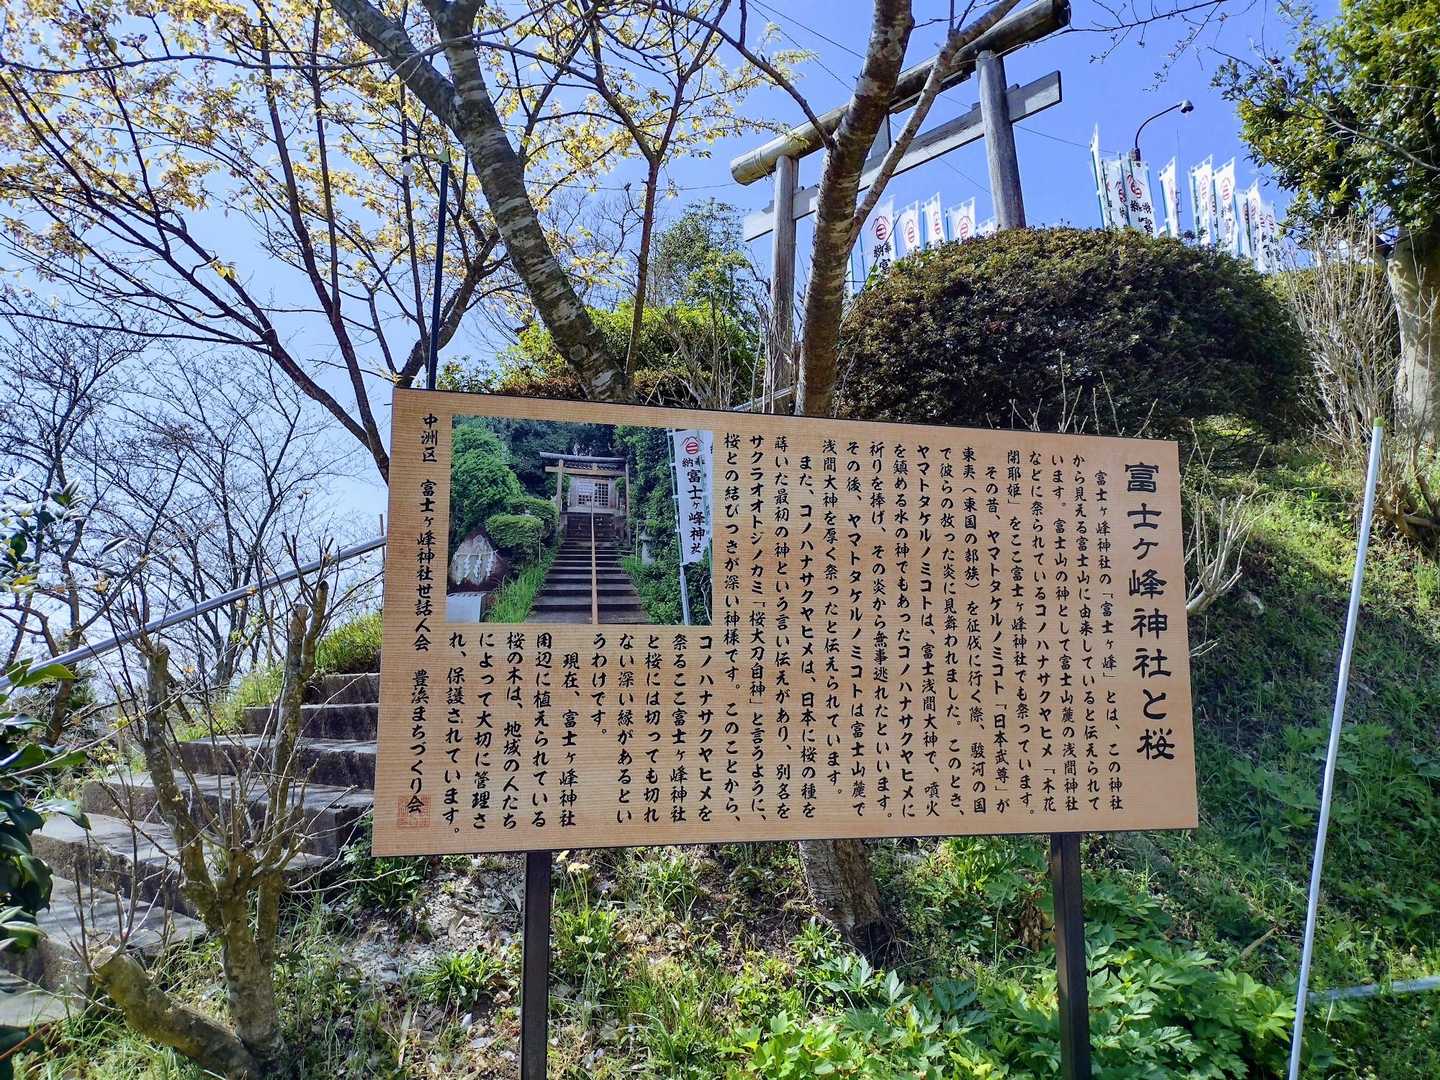 富士ヶ峰神社と桜
富士ヶ峰神社の「富士ヶ峰」とは、この神社
から見える富士山に由来していると伝えられて
います。富士山の神として富士山麓の浅間神社
などに祭られているコノハナサクヤヒメ「木花
開耶姫」をここ富士ヶ峰神社でも祭っています。
その昔、ヤマトタケルノミコト「日本武尊」が
東夷（東国の部族）を征伐に行く際、駿河の国
で彼らの放った炎に見舞われました。このとき、
ヤマトタケルノミコトは、富士浅間大神で、噴火
を鎮める水の神でもあったコノハナサクヤヒメに
祈りを捧げ、その炎から無事逃れたといいます。
その後、ヤマトタケルノミコトは富士山麓で
浅間大神を厚く祭ったと伝えられています。
また、コノハナサクヤヒメは、日本に桜の種を
蒔いた最初の神という言い伝えがあり、別名を
サクラオオトジノカミ「桜大刀自神」と言うように、
桜との結びつきが深い神様です。このことから、
コノハナサクヤヒメを
祭るここ富士ヶ峰神社
と桜には切っても切れ
ない深い縁があるとい
うわけです。
現在、富士ヶ峰神社
周辺に植えられている
桜の木は、地域の人たち
によって大切に管理さ
れ、保護されています。
中洲区 富士ヶ峰神社世話人会 豊浜まちづくり会
奉納 富士ヶ峰神社